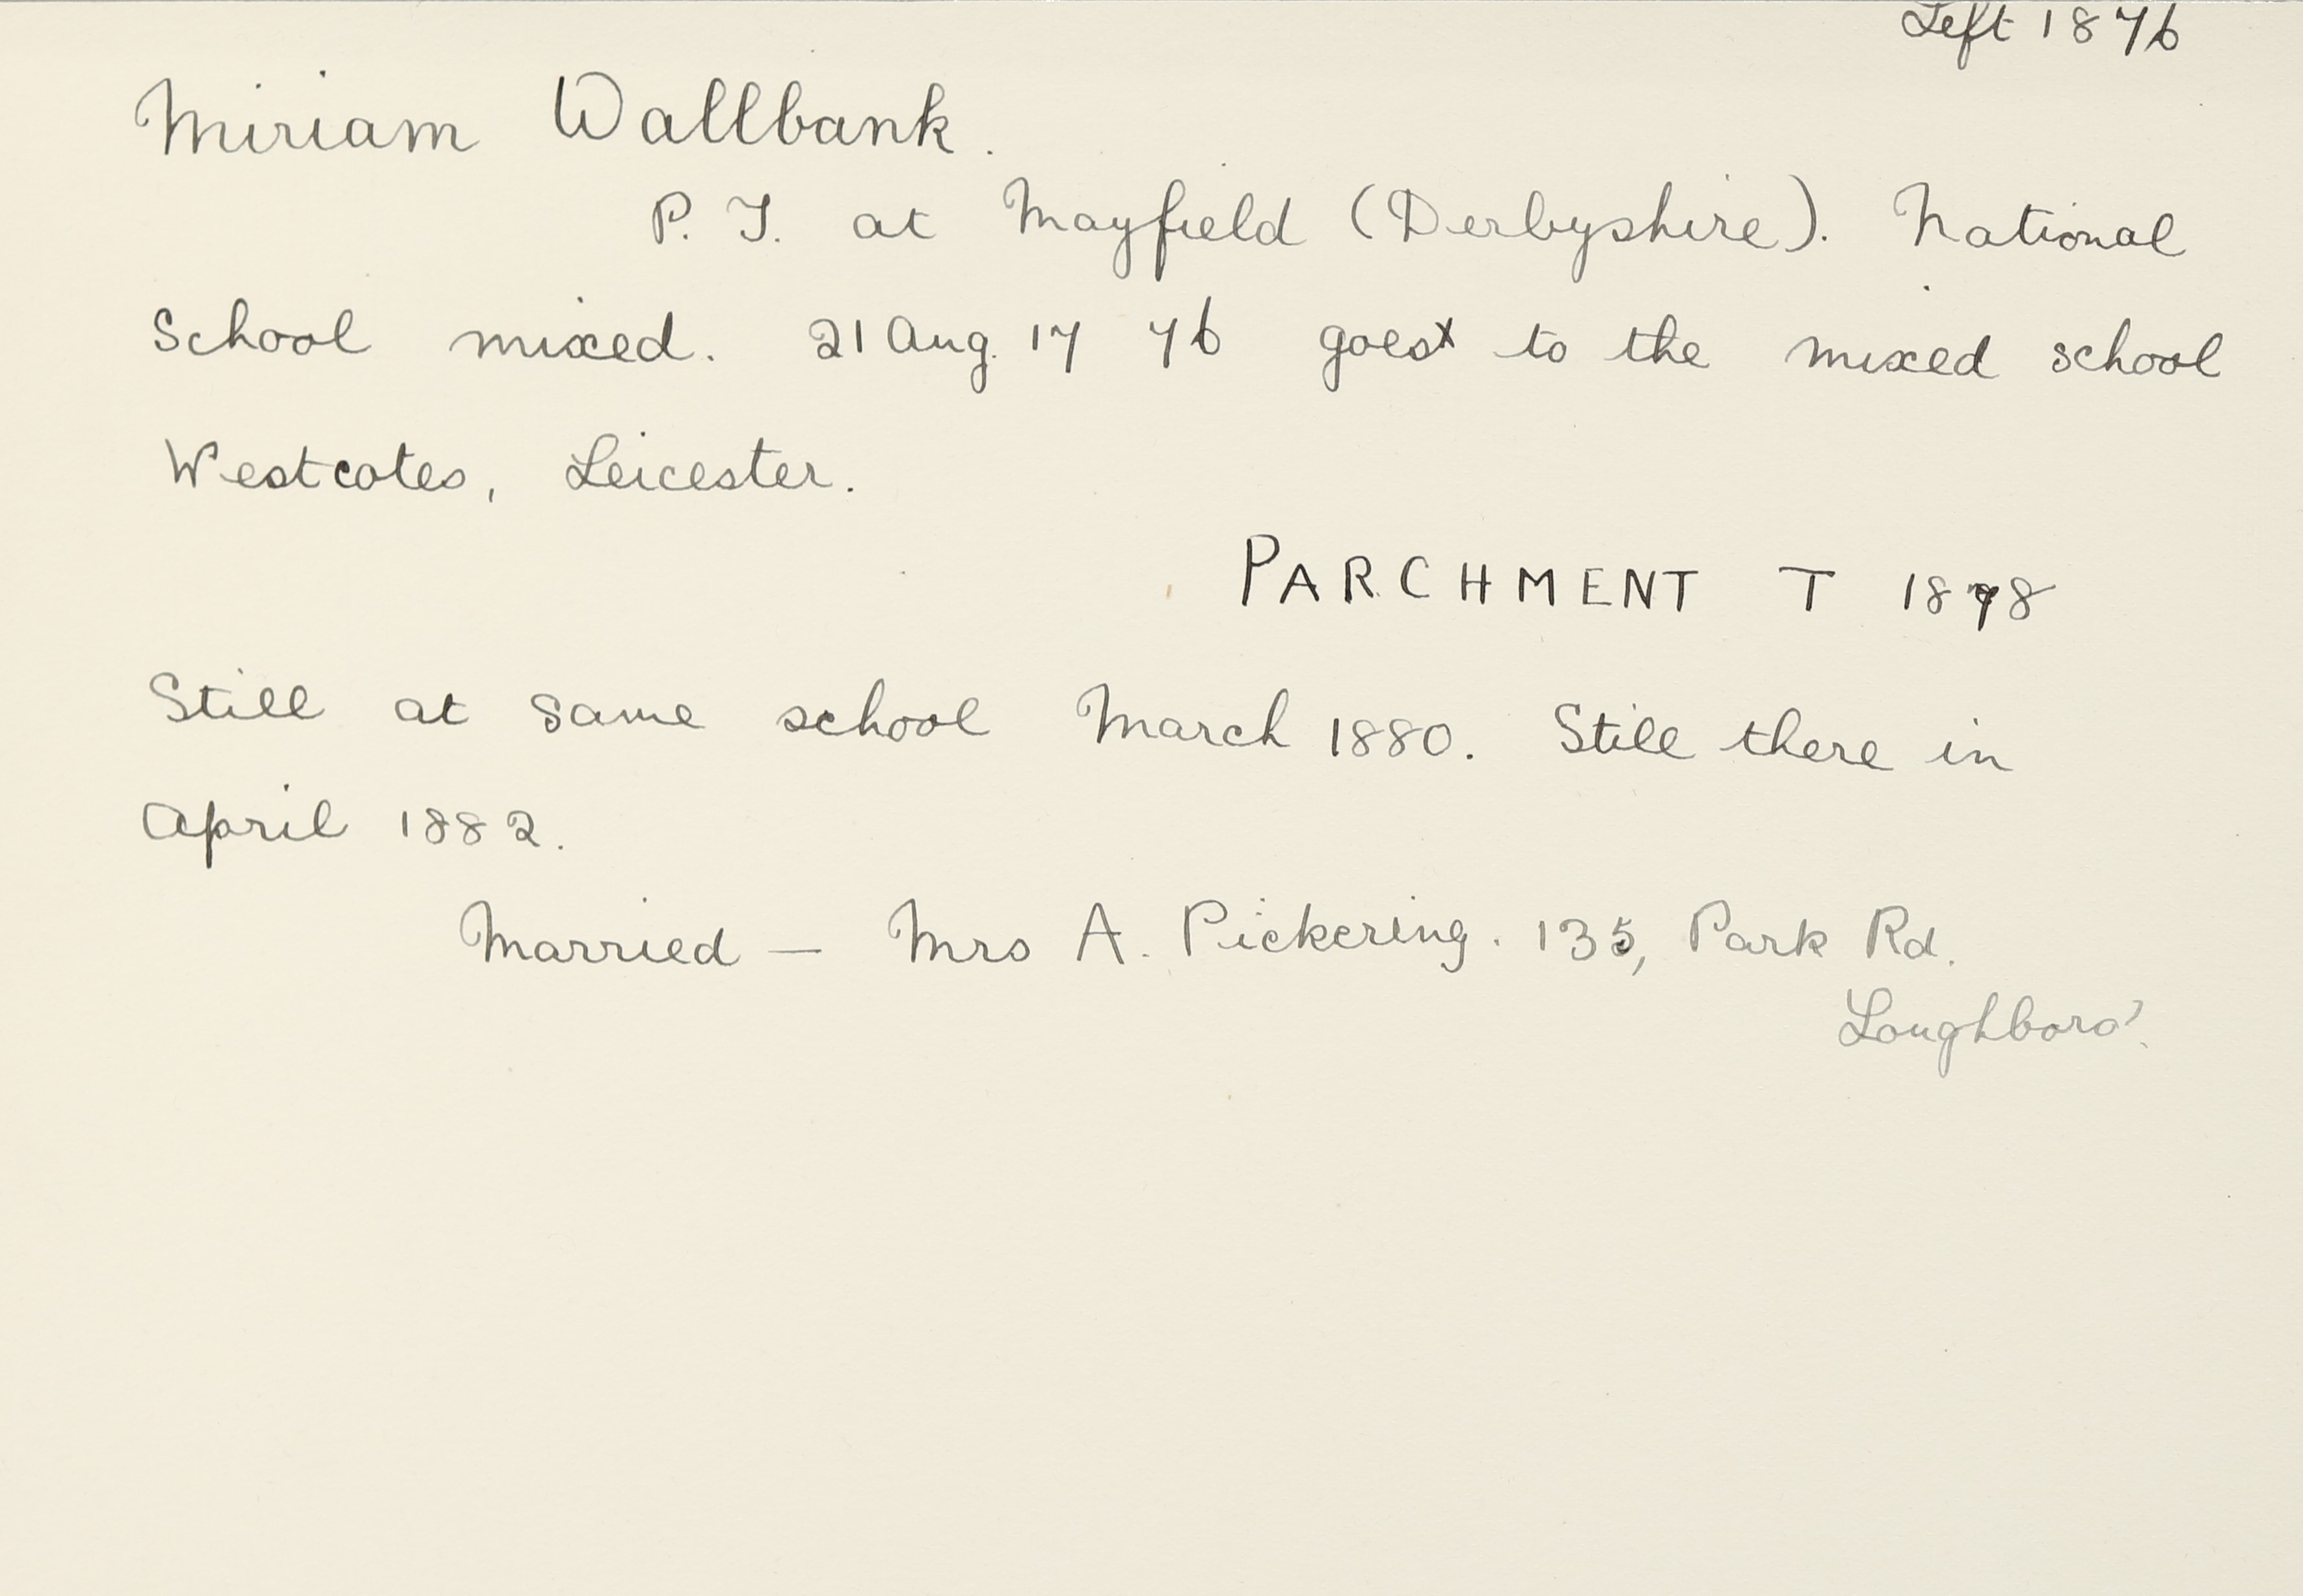 Left 1876
Miriam Wallbank.
P. T. at Mayfield (Derbyshire). National
School mixed. 21 Aug. 17 76 goes to the mixed school
Westcotes, Leicester.
PARCHMENT T 1878
Still at same school March 1880. Still there in
April 1882.
Married — Mrs A. Pickering. 135, Park Rd.
Loughboro'.